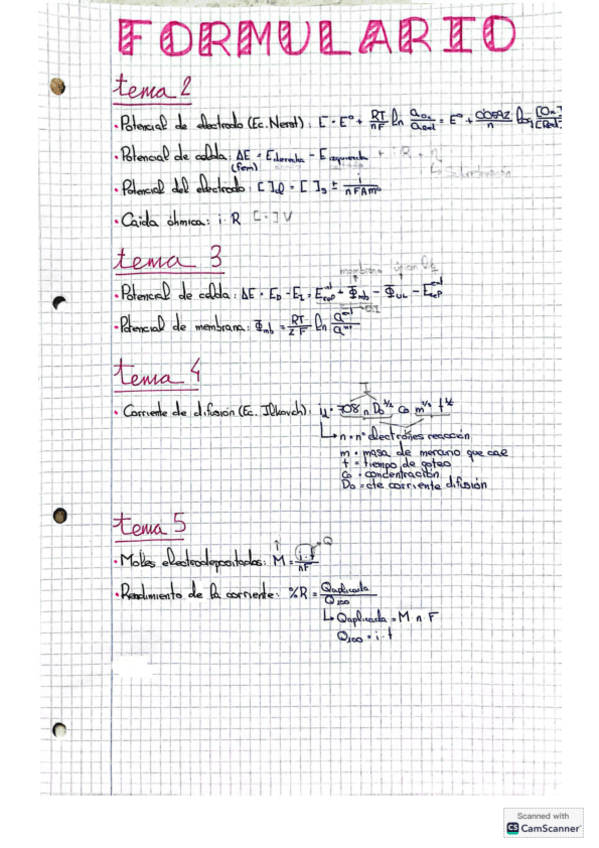 FORMULARIO
tema 2
· Potencial de electrodo (Ec. Nerst): E = E° + RT/nF ln aox/ared = E° + 0'05992/n log [Ox]/[Red]
· Potencial de celda: ΔE = Ederecha - Eizquierda + i·R + η
(fem) ↳ Sobretensión
· Potencial del electrodo: [ ]el = [ ]s ± i/nFAm
· Caída óhmica: i·R [=] V
tema 3
membrana unión
· Potencial de celda: ΔE = ED - EI = Eref + Φmb - ΦUL - Eref
· Potencial de membrana: Φmb = RT/zF ln
tema 4
I
· Corriente de difusión (Ec. Ilkovich): id = 708 n Do^1/2 Co m^2/3 t^1/6
↳ n = nº electrones reacción
m = masa de mercurio que cae
t = tiempo de goteo
Co = concentración
Do = cte corriente difusión
tema 5
· Moles electrodepositados: M = i·t/nF → Q
· Rendimiento de la corriente: %R = Qaplicada/Q100
↳ Qaplicada = M n F
Q100 = i·t
Scanned with
CS CamScanner